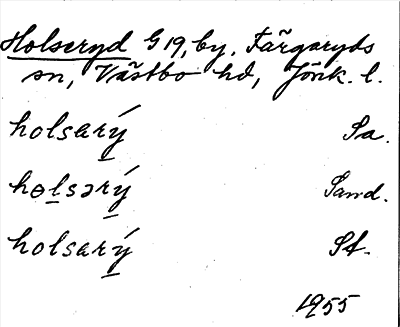 Holseryd G19, by, Färgaryds
sn, Västbo hd, Jönk. l.
holsarý̱ Sa.
hɵḻsərý̱ Sand.
holsarý̱ Sf.
1955